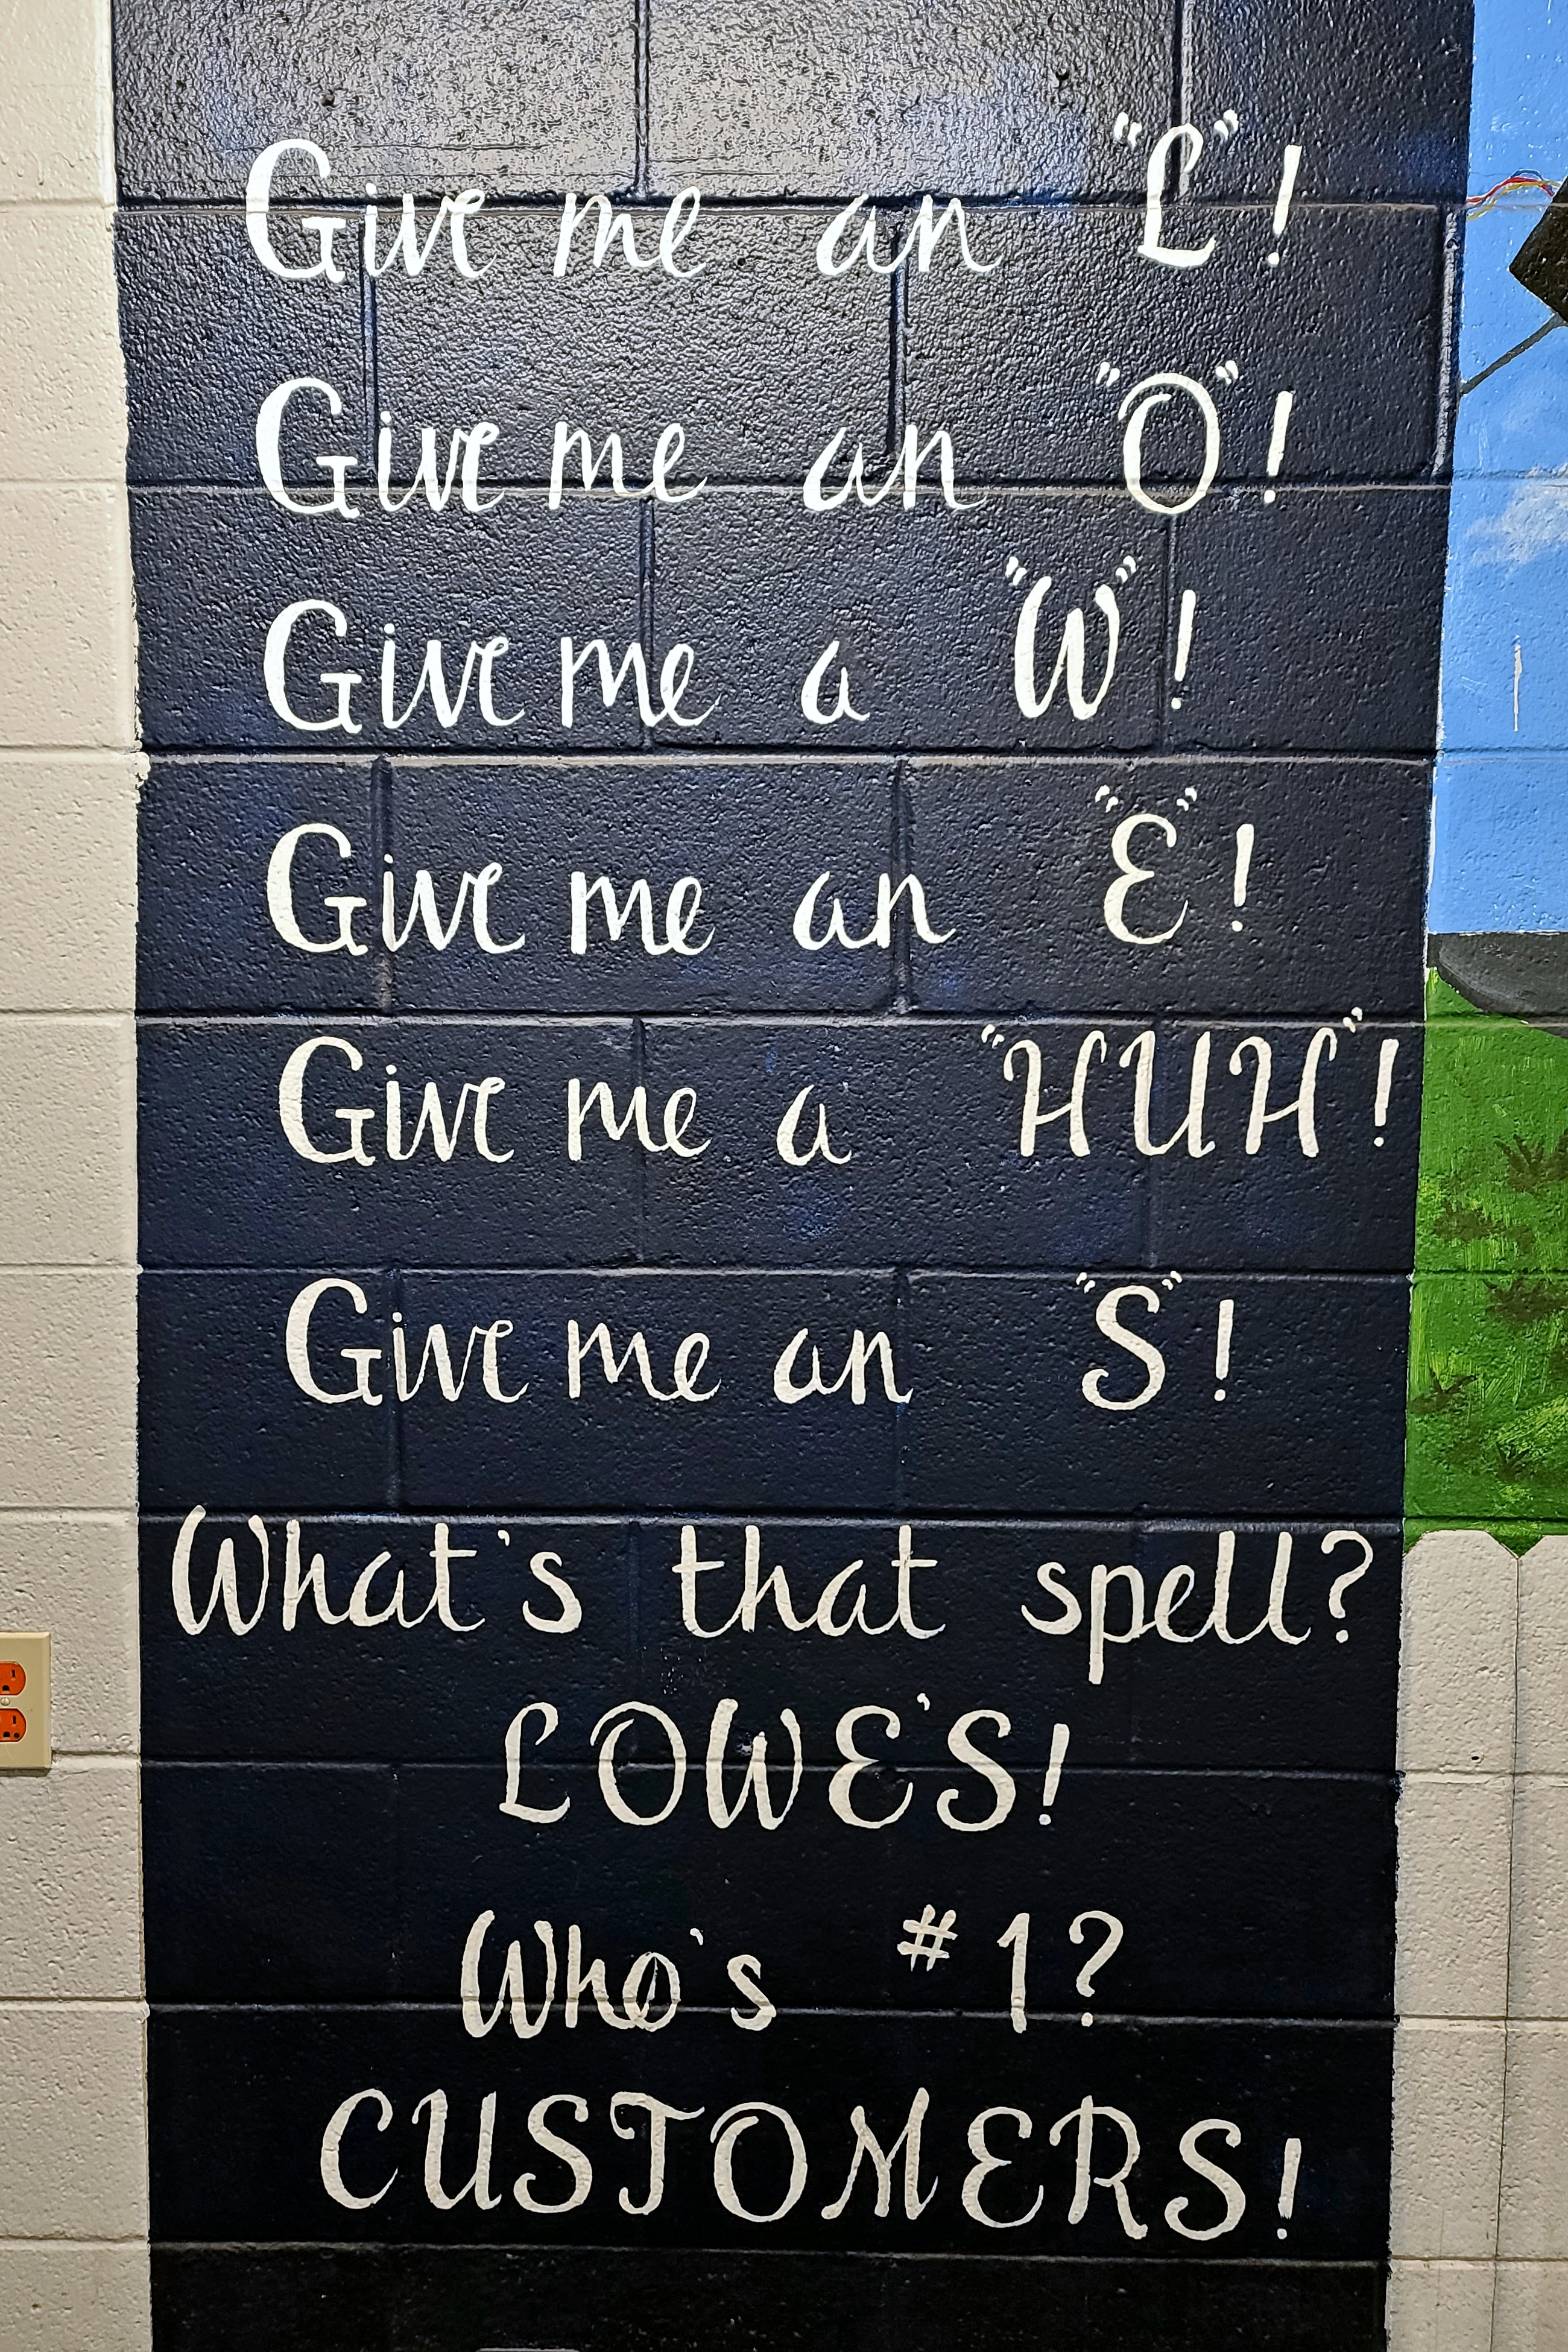 Give me an "L"!
Give me an "O"!
Give me a "W"!
Give me an "E"!
Give me a "HUH"!
Give me an "S"!
What's that spell?
LOWE'S!
Who's #1?
CUSTOMERS!